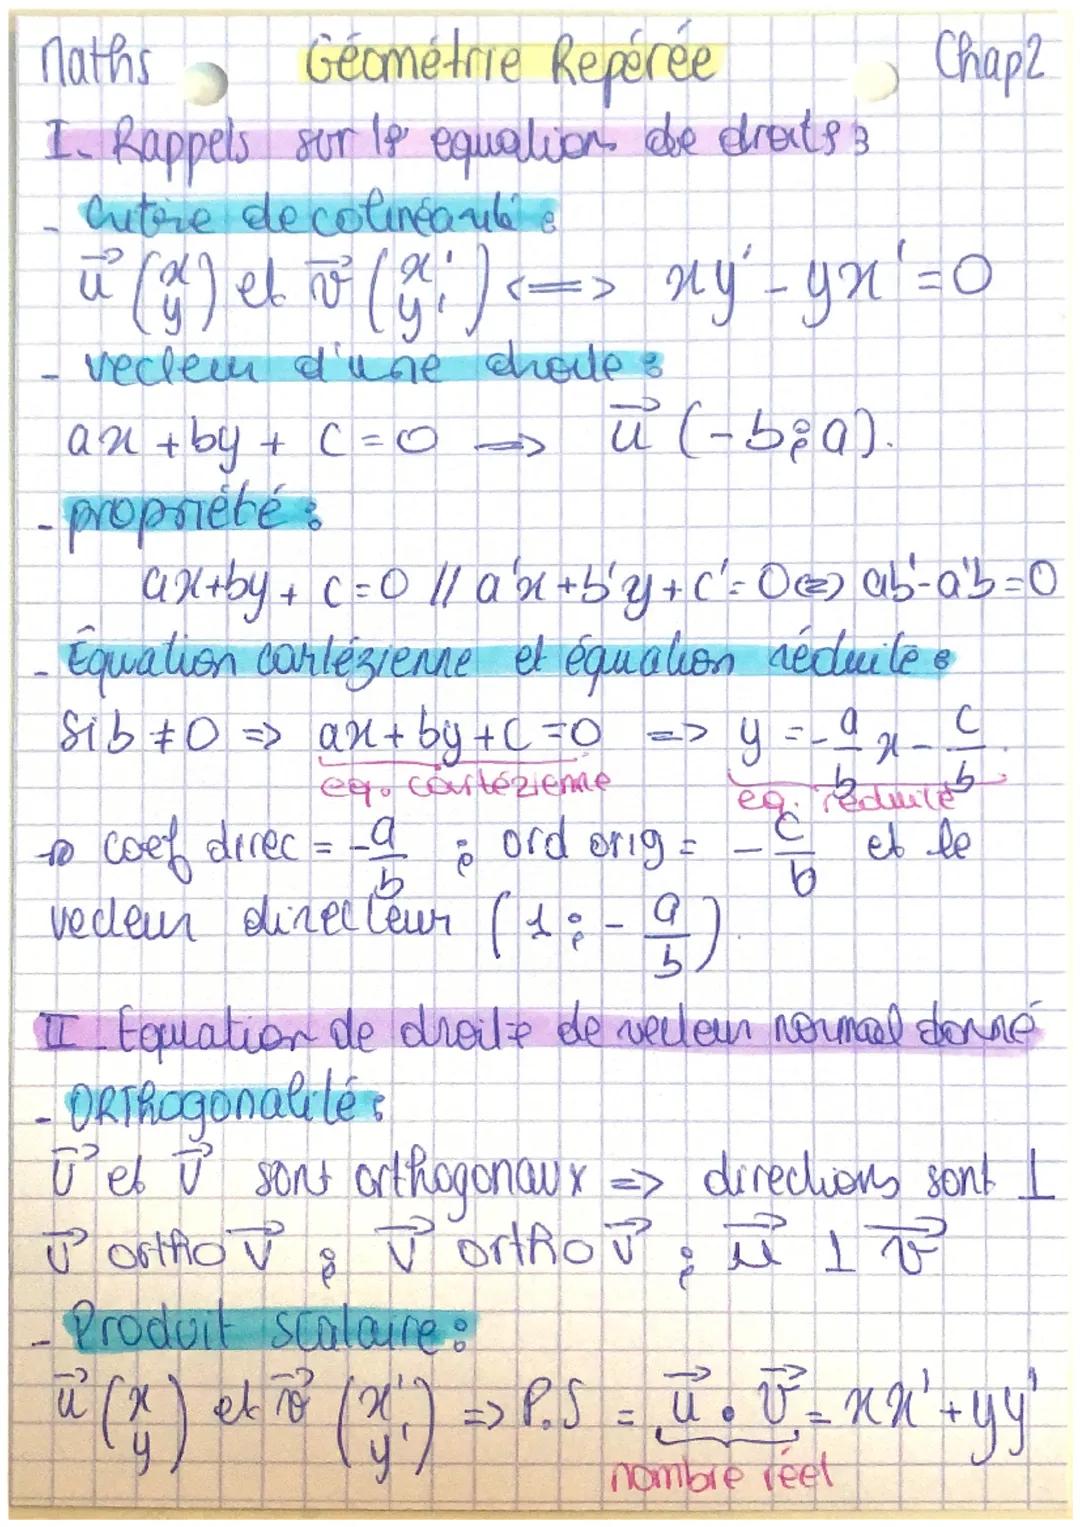 Maths Géométrie Repérée Chap2
I- Rappels sur les equation de droites :
- Critère de colinéarité :
u⃗ (x y) et v⃗ (x' y') <=> xy' - yx' = 0
- vecteur d'une droite :
ax + by + c = 0 => u⃗ (-b ; a).
- propriété :
ax+by+ c=0 // a'x+b'y+c'=0 <=> ab'-a'b=0
- Équation cartézienne et équation réduite :
Si b ≠ 0 => ax+by+c=0 => y = -a/b x - c/b.
eq. cartézienne eq. réduite
→ coef direc = -a/b ; ord orig = -c/b et le
vecteur directeur (1 ; -a/b).
II- Equation de droite de vecteur normal donné
- ORThogonalité :
u⃗ et v⃗ sont orthogonaux => directions sont ⊥
u⃗ ortho v⃗ ; v⃗ ortho u⃗ ; u⃗ ⊥ v⃗
- Produit scalaire :
u⃗ (x y) et v⃗ (x' y') => P.S = u⃗ . v⃗ = xx' + yy'
nombre réel